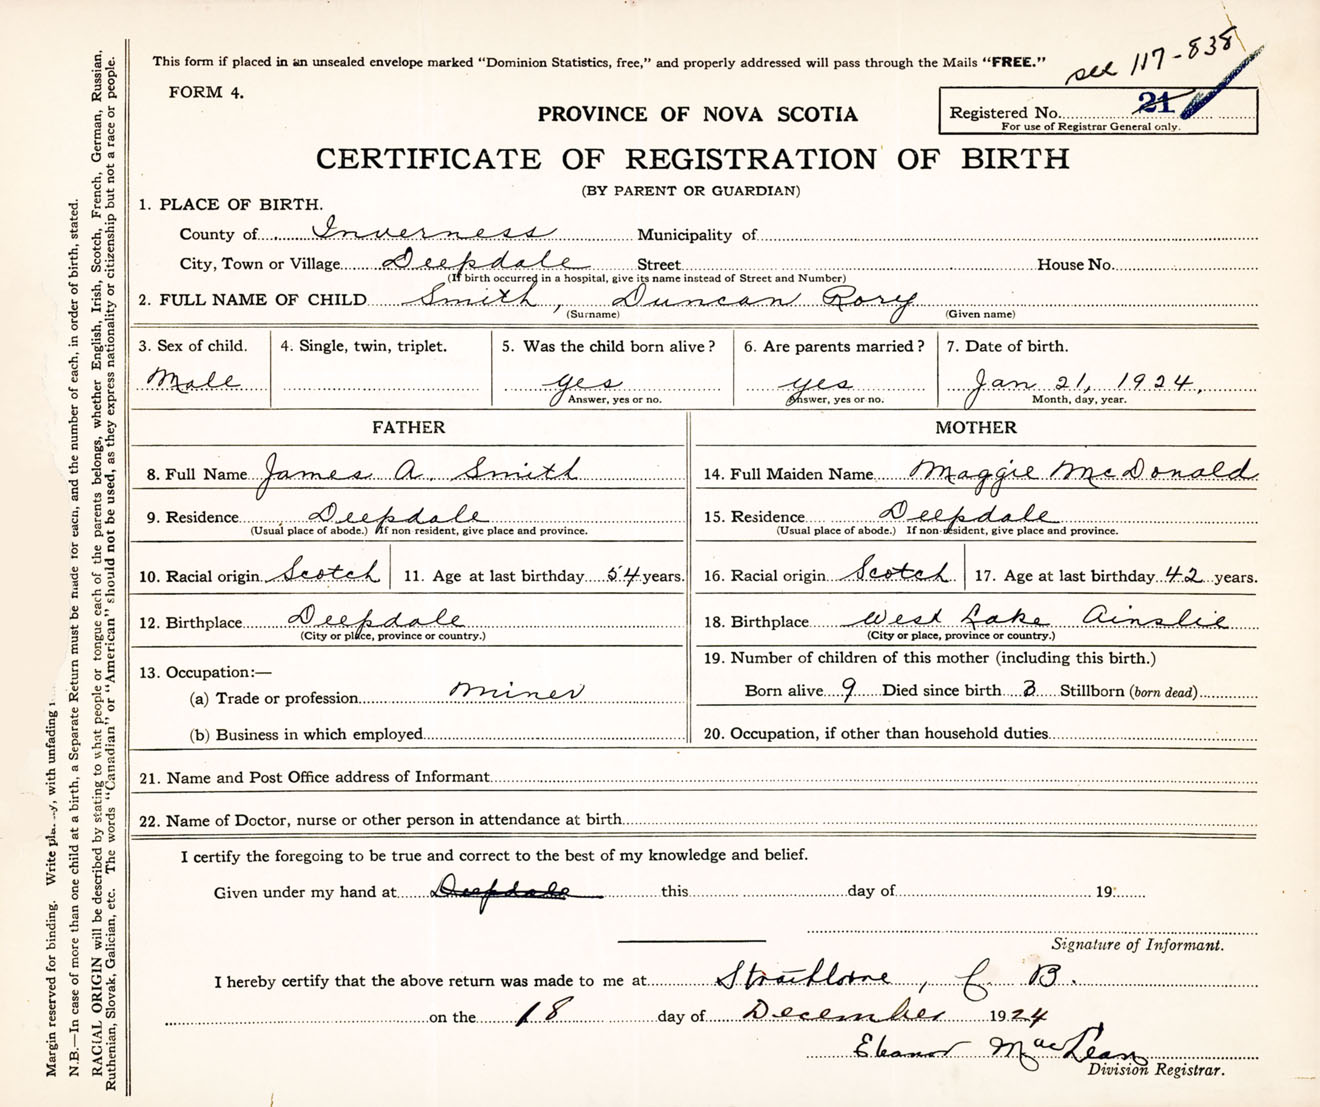 This form if placed in an unsealed envelope marked "Dominion Statistics, free," and properly addressed will pass through the Mails "FREE."
see 117-838
FORM 4.
Registered No. 21
For use of Registrar General only.
PROVINCE OF NOVA SCOTIA
CERTIFICATE OF REGISTRATION OF BIRTH
(BY PARENT OR GUARDIAN)
1. PLACE OF BIRTH.
County of Inverness Municipality of
City, Town or Village Deepdale Street House No.
(If birth occurred in a hospital, give its name instead of Street and Number)
2. FULL NAME OF CHILD Smith, Duncan Rory
(Surname) (Given name)
3. Sex of child. 4. Single, twin, triplet. 5. Was the child born alive? 6. Are parents married? 7. Date of birth.
Male yes yes Jan 21, 1924,
Answer, yes or no. Answer, yes or no. Month, day, year.
FATHER MOTHER
8. Full Name James A. Smith 14. Full Maiden Name Maggie McDonald
9. Residence Deepdale 15. Residence Deepdale
(Usual place of abode.) If non resident, give place and province. (Usual place of abode.) If non-resident, give place and province.
10. Racial origin Scotch 11. Age at last birthday 54 years. 16. Racial origin Scotch 17. Age at last birthday 42 years.
12. Birthplace Deepdale 18. Birthplace West Lake Ainslie
(City or place, province or country.) (City or place, province or country.)
13. Occupation:— 19. Number of children of this mother (including this birth.)
(a) Trade or profession miner Born alive 9 Died since birth 3 Stillborn (born dead)
(b) Business in which employed 20. Occupation, if other than household duties
21. Name and Post Office address of Informant
22. Name of Doctor, nurse or other person in attendance at birth
I certify the foregoing to be true and correct to the best of my knowledge and belief.
Given under my hand at Deepdale this day of 19
Signature of Informant.
I hereby certify that the above return was made to me at Strathlorne, C. B.
on the 18 day of December 1924
Eleanor MacLean
Division Registrar.
Margin reserved for binding. Write with unfading
N.B.—In case of more than one child at a birth, a Separate Return must be made for each, and the number of each, in order of birth, stated.
RACIAL ORIGIN will be described by stating to what people or tongue each of the parents belongs, whether English, Irish, Scotch, French, German, Russian,
Ruthenian, Slovak, Galician, etc. The words "Canadian" or "American" should not be used, as they express nationality or citizenship but not a race or people.